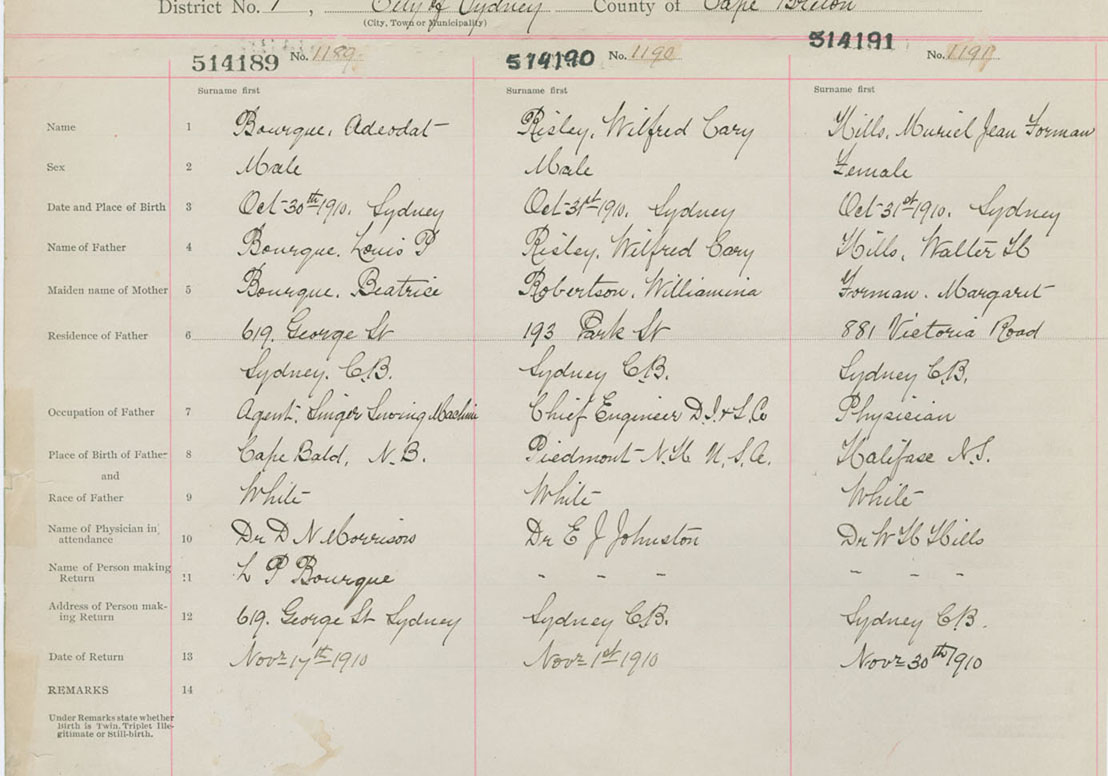 District No. 1, City of Sydney County of Cape Breton
(City, Town or Municipality)
514189 No. 1189 514190 No. 1190 514191 No. 1191
Surname first Surname first Surname first
Name 1 Bourque, Adeodat Risley, Wilfred Cary Hills, Muriel Jean Forman
Sex 2 Male Male Female
Date and Place of Birth 3 Oct 30th 1910. Sydney Oct 31st 1910. Sydney Oct 31st 1910. Sydney
Name of Father 4 Bourque, Louis P Risley, Wilfred Cary Hills, Walter H
Maiden name of Mother 5 Bourque. Beatrice Robertson, Williamina Forman. Margaret
Residence of Father 6 619. George St 193 Park St 881 Victoria Road
Sydney. C.B. Sydney C.B. Sydney C.B.
Occupation of Father 7 Agent. Singer Sewing Machine Chief Engineer D.I.&S.Co Physician
Place of Birth of Father 8 Cape Bald, N.B. Piedmont N.H U.S.A. Halifax N.S.
and
Race of Father 9 White White White
Name of Physician in
attendance 10 Dr D N Morrison Dr E J Johnston Dr W H Hills
Name of Person making
Return 11 L P Bourque - - - - - -
Address of Person mak-
ing Return 12 619. George St Sydney Sydney C.B. Sydney C.B.
Date of Return 13 Novr 17th 1910 Novr 1st 1910 Novr 30th 1910
REMARKS 14
Under Remarks state whether
Birth is Twin, Triplet Ille-
gitimate or Still-birth.